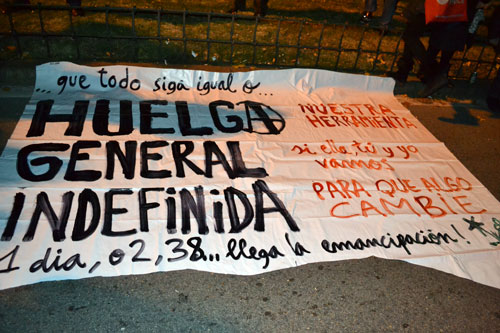 ...que todo siga igual o...
HUELGA
GENERAL
INDEFINIDA
1 dia, o 2, 38... llega la emancipación!
NUESTRA
HERRAMIENTA
si ella, tú y yo
vamos
PARA QUE ALGO
CAMBIE